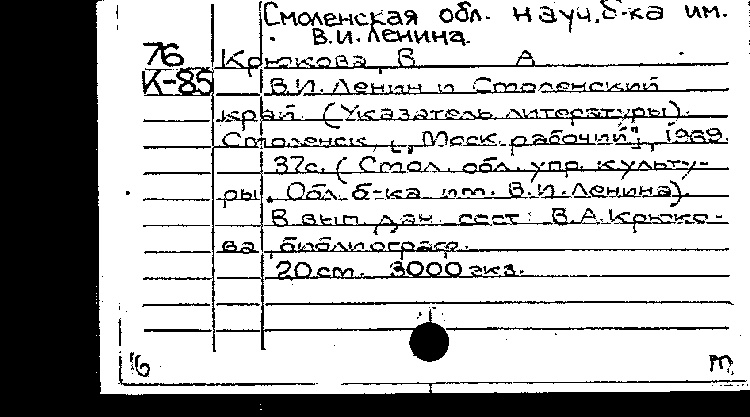 Смоленская обл. науч. б-ка им.
В.И. Ленина.
76 Крюкова, В А
К-85 В.И. Ленин и Смоленский
край. (Указатель литературы).
Смоленск, „Моск. рабочий", 1969.
37с. (Смол. обл. упр. культу-
ры. Обл. б-ка им. В.И. Ленина).
В вып. дан. сост: В.А. Крюко-
ва, библиограф.
20 см. 3000 экз.